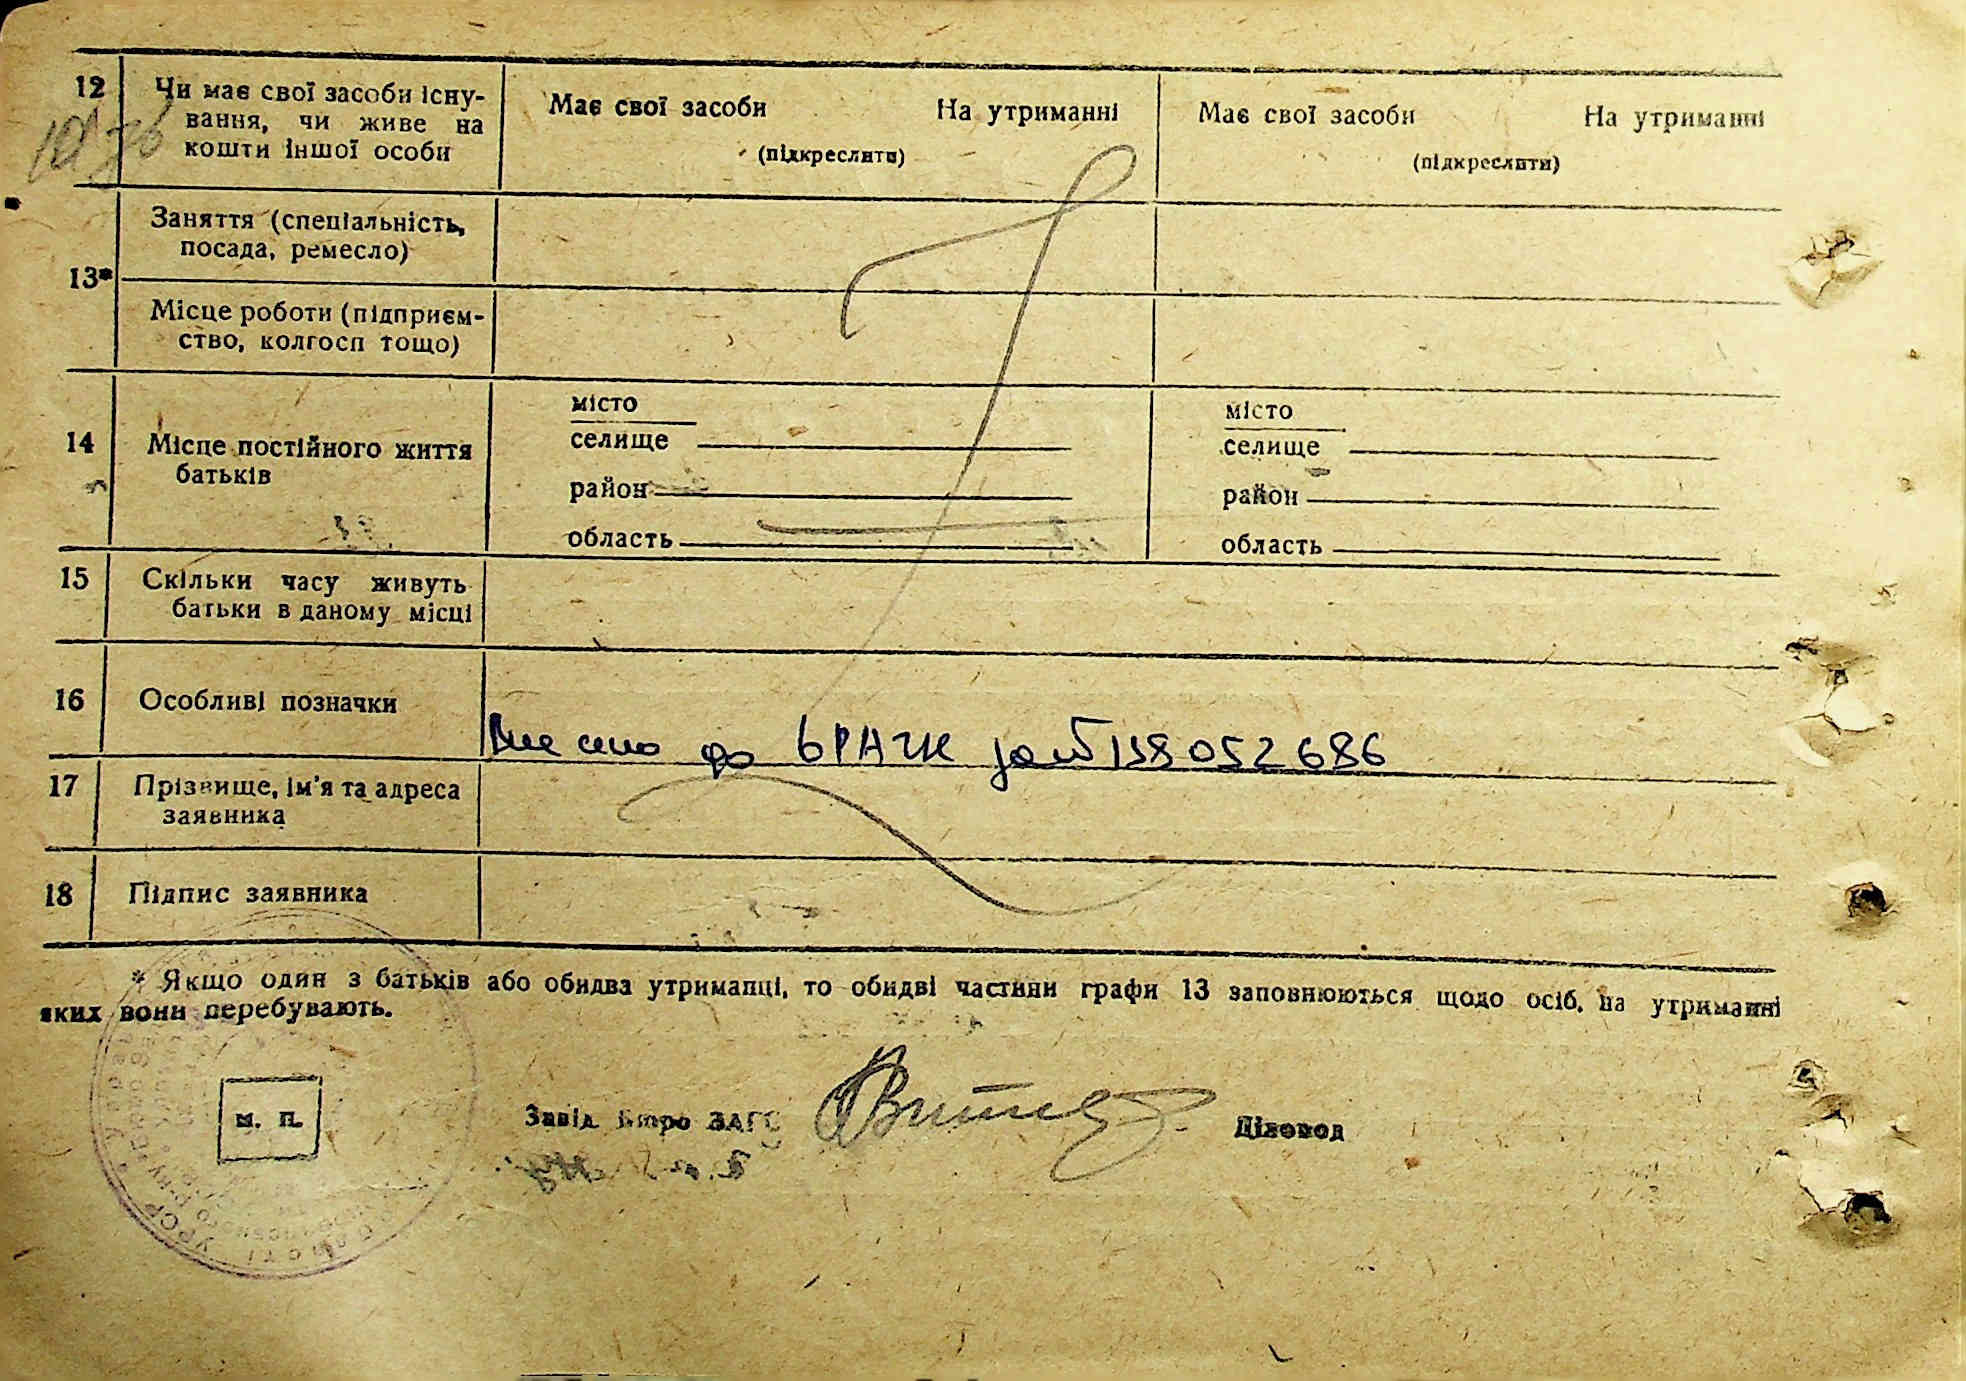 12
Чи має свої засоби існу-
вання, чи живе на
кошти іншої особи
Має свої засоби На утриманні
(підкреслити)
Має свої засоби На утриманні
(підкреслити)
13*
Заняття (спеціальність,
посада, ремесло)
Місце роботи (підприєм-
ство, колгосп тощо)
14
Місце постійного життя
батьків
місто
селище
район
область
місто
селище
район
область
15
Скільки часу живуть
батьки в даному місці
16 Особливі позначки
Внесено до ДРАЦС за № 138052686
17
Прізвище, ім'я та адреса
заявника
18 Підпис заявника
* Якщо один з батьків або обидва утриманці, то обидві частини графи 13 заповнюються щодо осіб, на утриманні
яких вони перебувають.
м. п.
Завід. Бюро ЗАГС Діловод
УРСР